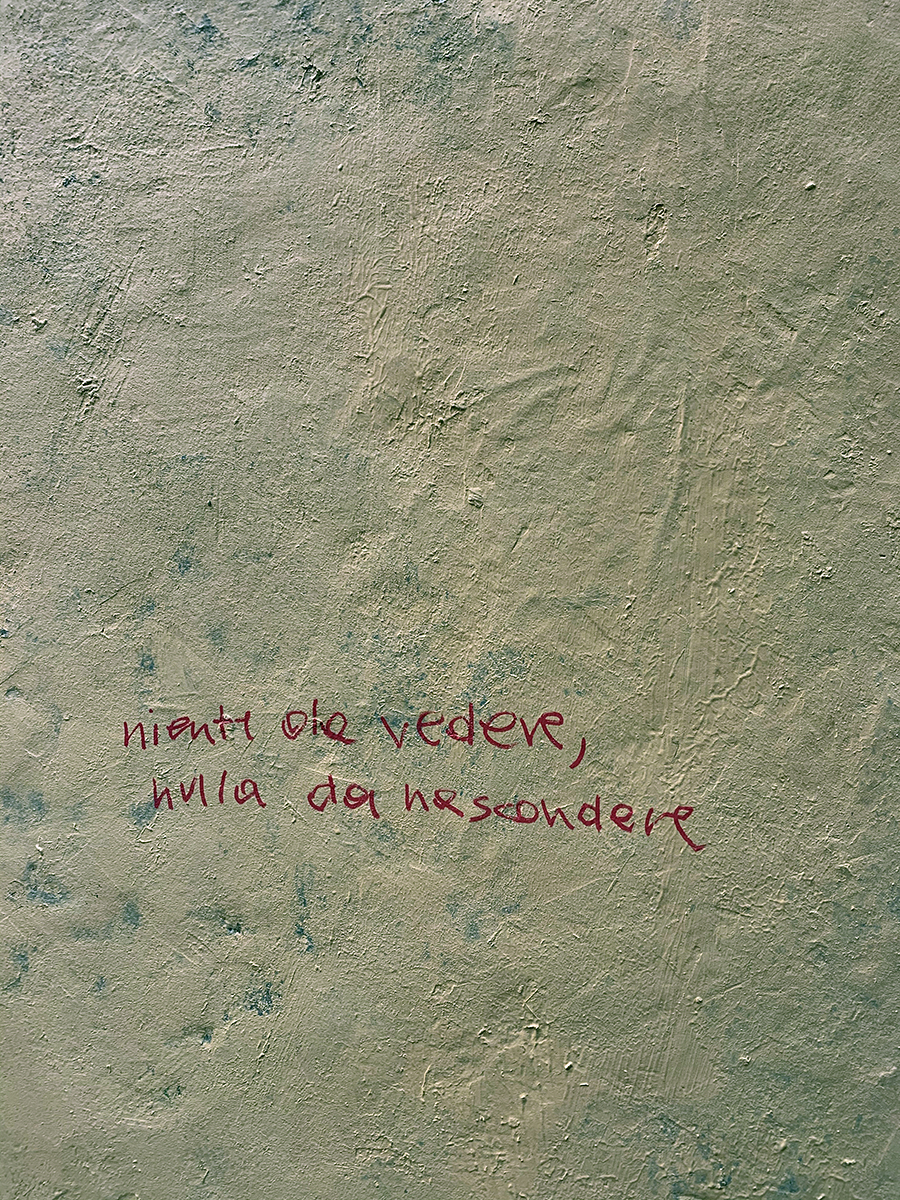 niente da vedere,
nulla da nascondere